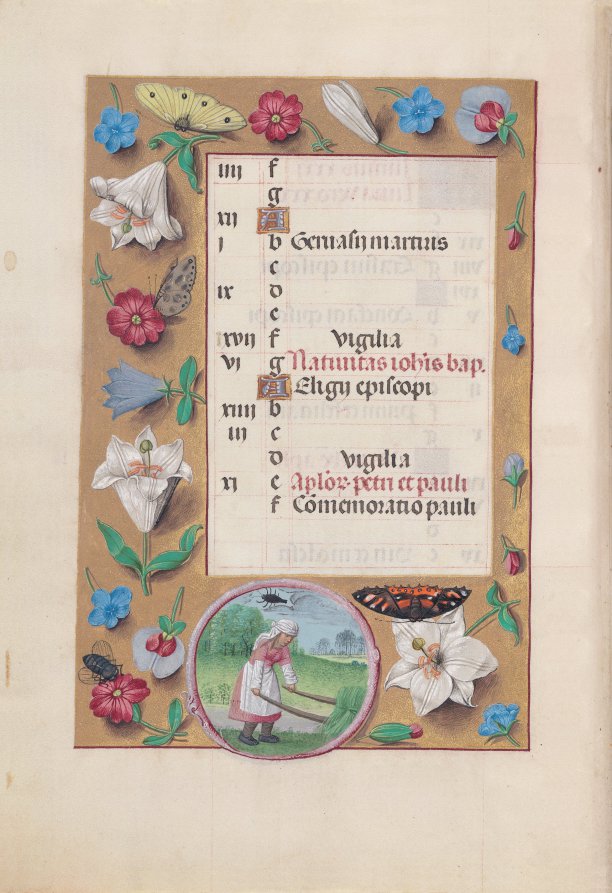 iiii f
g
xii A
i b Geruasii martiris
c
ix d
e
xvii f vigilia
vi g Natiuitas iohis bap.
A Eligii episcopi
xiiii b
iii c
d vigilia
xi e Aplor. petri et pauli
f Comemoratio pauli